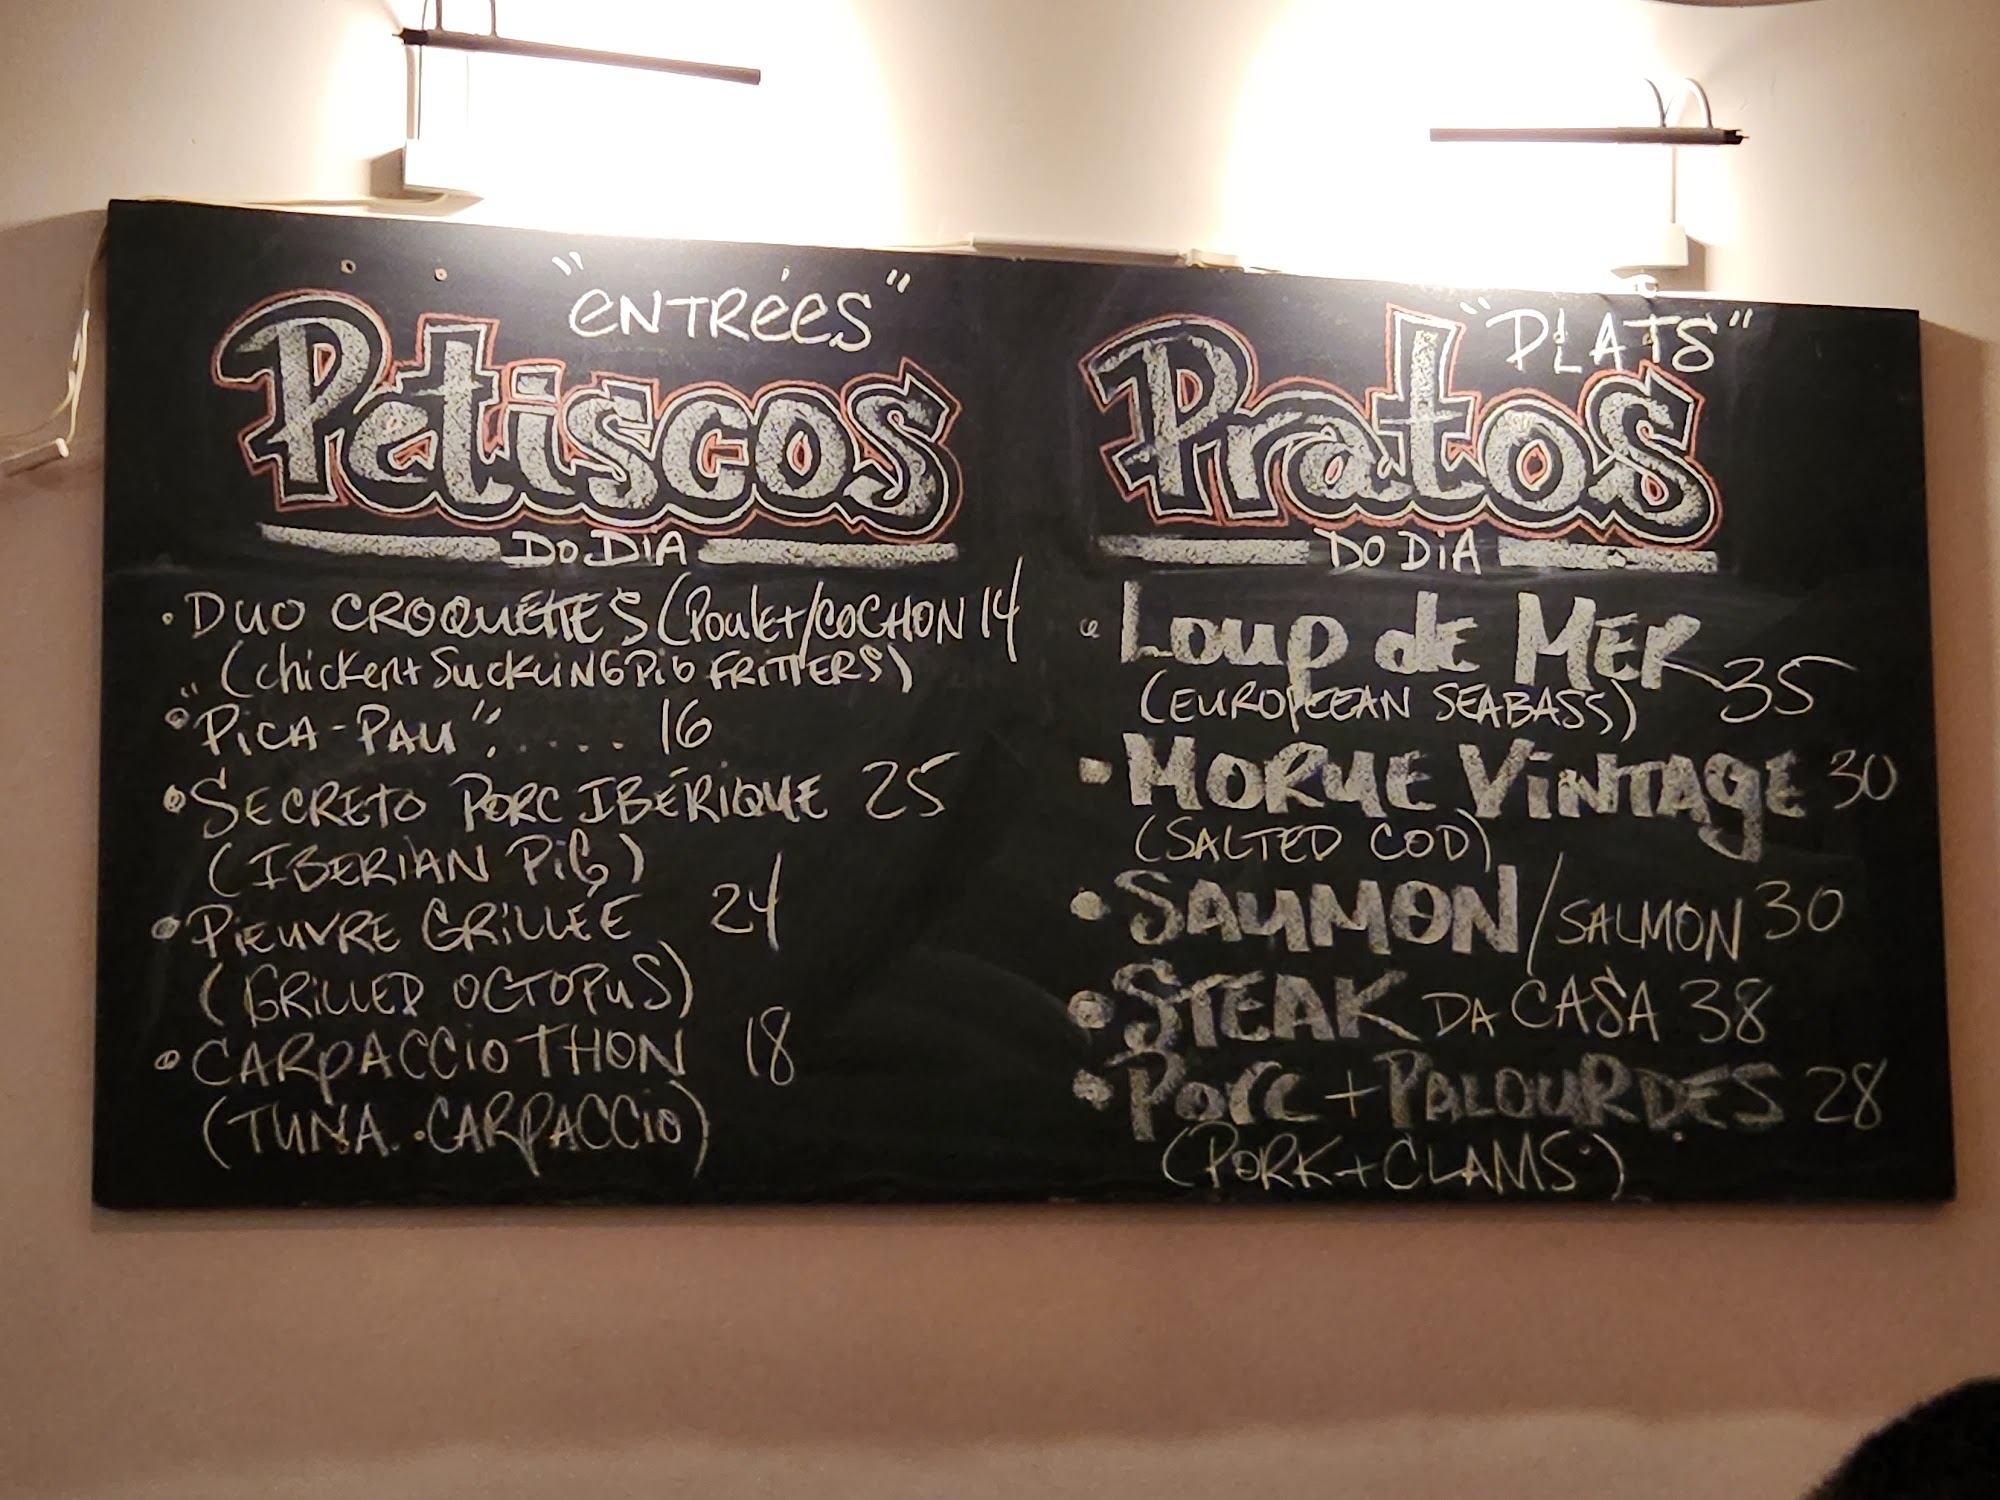 "ENTRÉES"
Petiscos
DO DIA
• DUO CROQUETTES (Poulet/COCHON 14
(chicken+SuckliNG PiG FRITTERS)
• "PICA-PAU"..... 16
• SECRETO PORC IBÉRIQUE 25
(IBERIAN PIG)
• PIEUVRE GRILLÉE 24
(GRILLED OCTOPUS)
• CARPACCIO THON 18
(TUNA CARPACCIO)
"PLATS"
Pratos
DO DIA
• Loup de MER 35
(EUROPEEAN SEABASS)
• MORUE VINTAGE 30
(SALTED COD)
• SAUMON/SALMON 30
• STEAK DA CASA 38
• PORC + PALOURDES 28
(PORK + CLAMS)